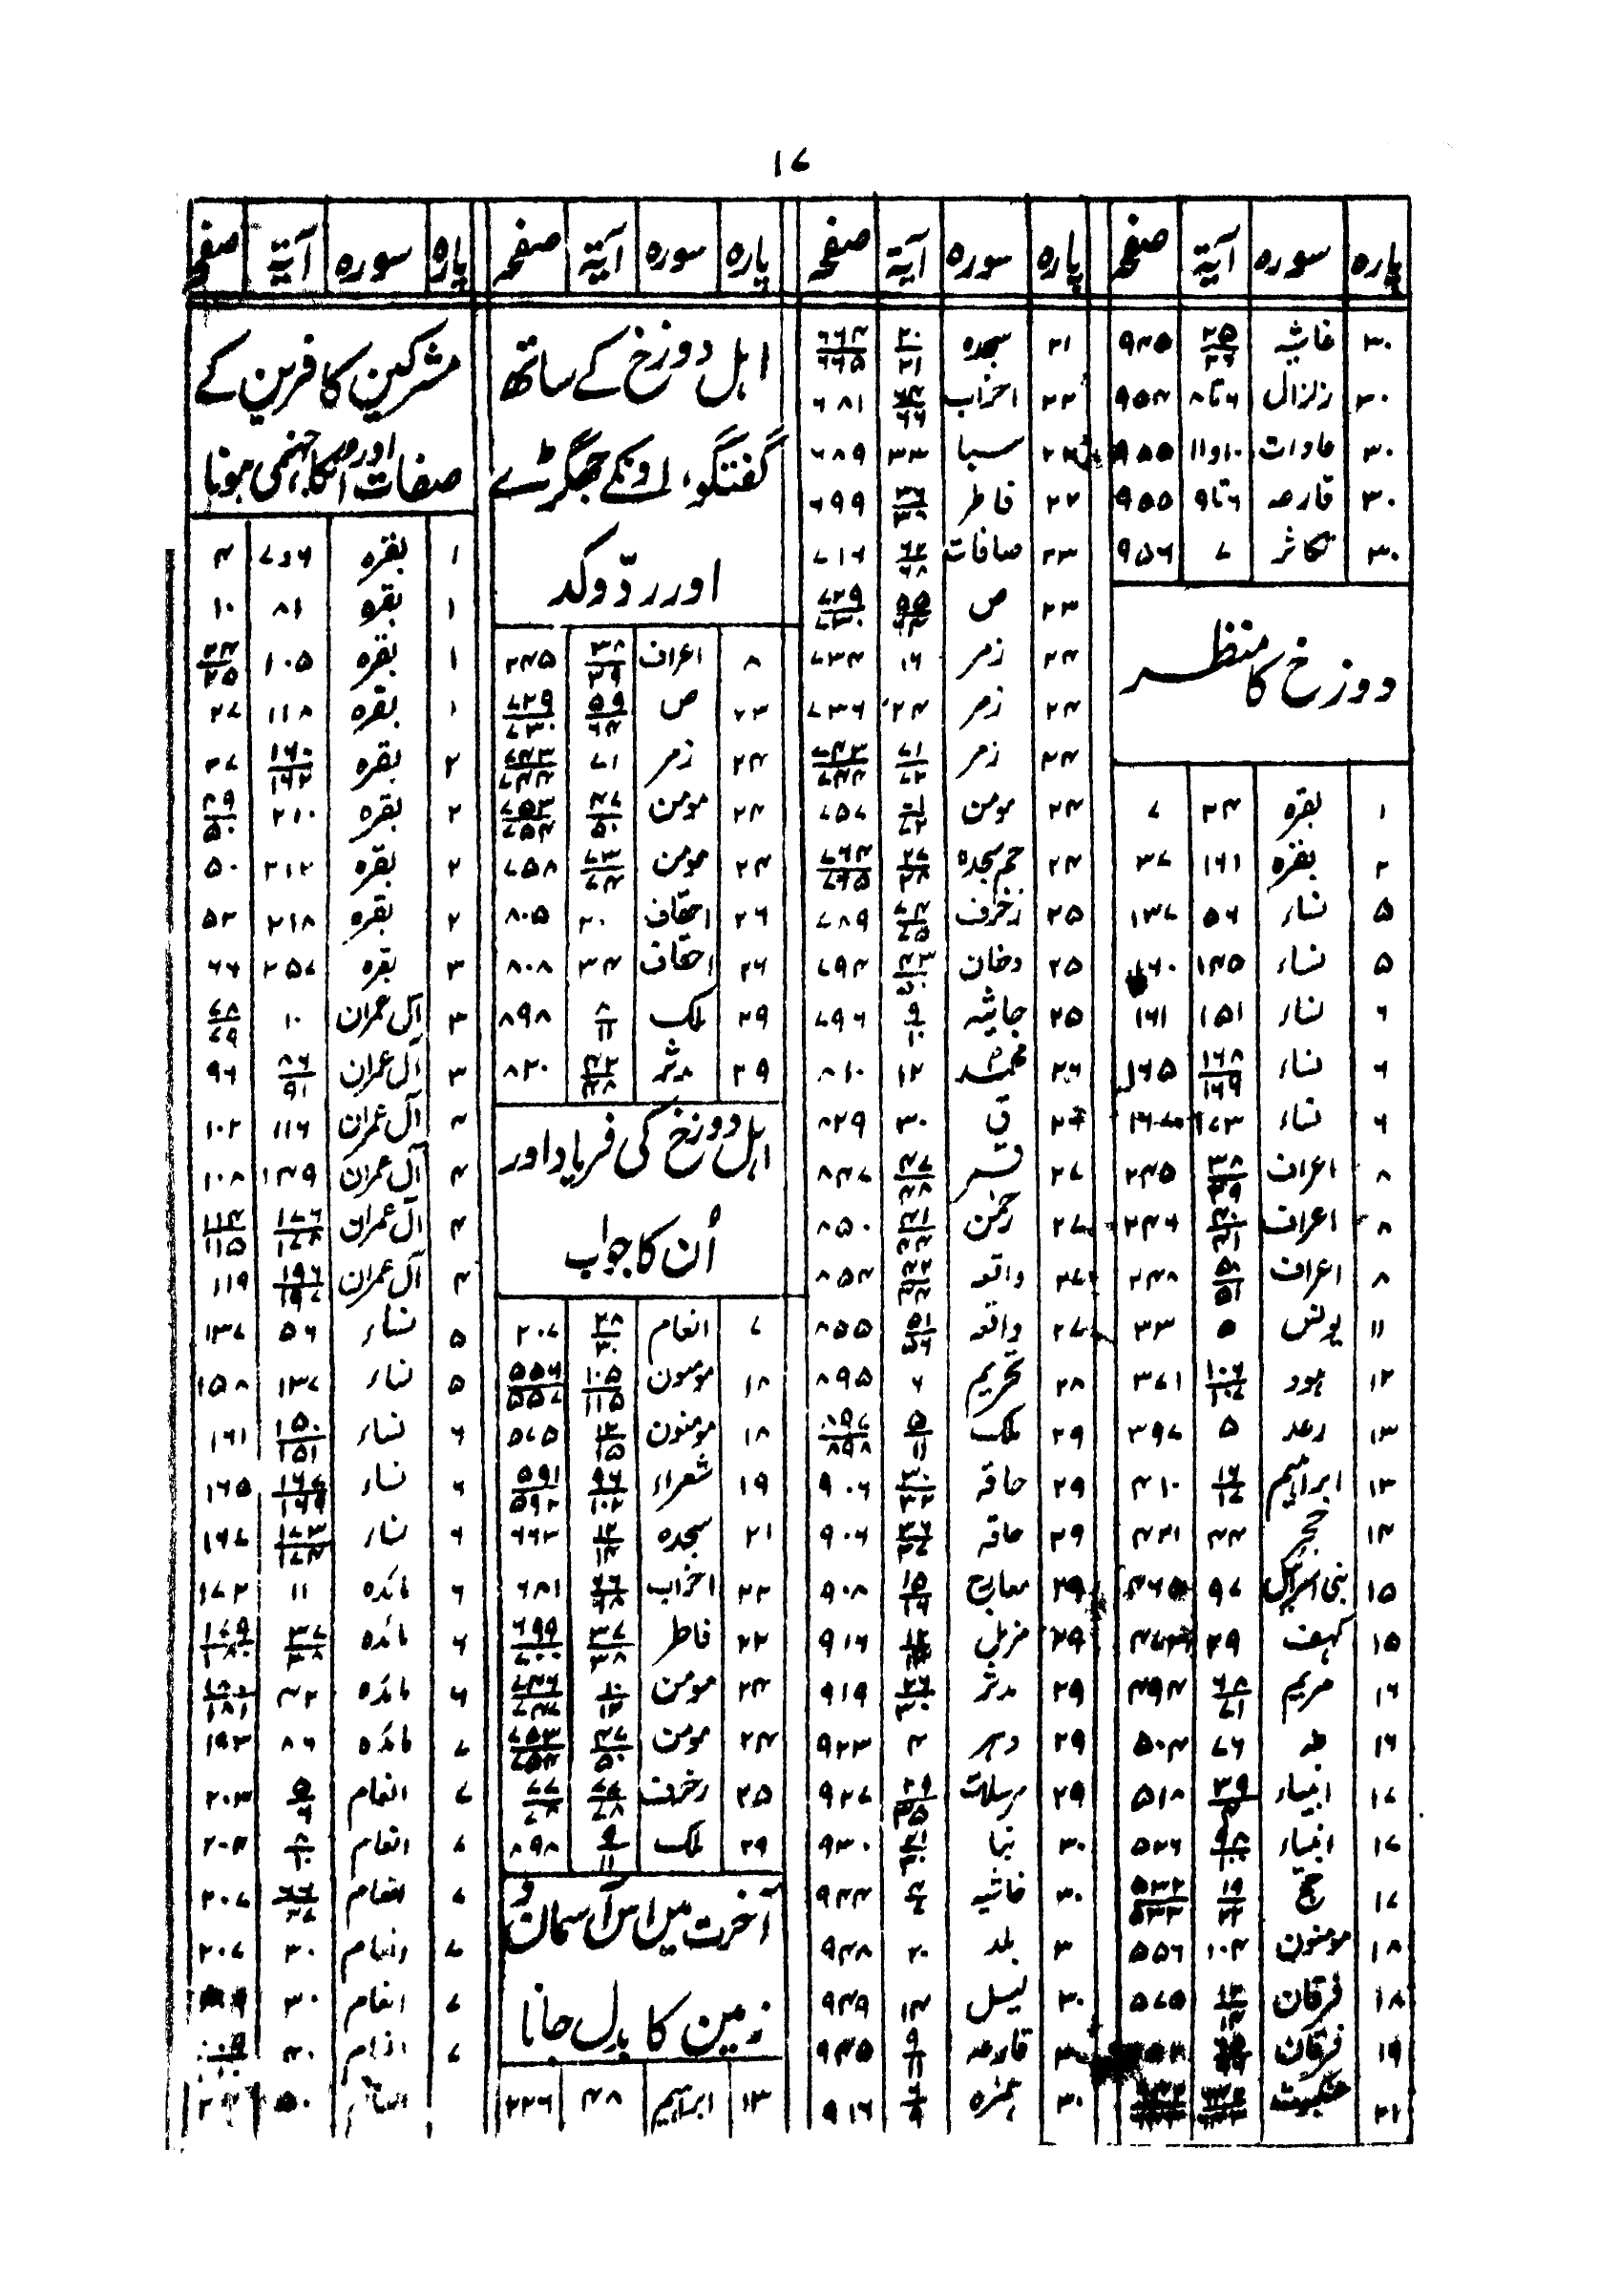 ۱۷
پارہ سورہ آیۃ صفحہ
۳۰ غاشیہ ۲۵/۲۶ ۹۴۵
۳۰ زلزال ۶تا۸ ۹۵۴
۳۰ عادات ۱۰و۱۱ ۹۵۵
۳۰ قارعہ ۶تا۹ ۹۵۵
۳۰ تکاثر ۷ ۹۵۶
دوزخ کا منظر
۱ بقرہ ۲۴ ۷
۲ بقرہ ۱۶۱ ۳۷
۵ نساء ۵۶ ۱۳۷
۵ نساء ۱۴۵ ۱۶۰
۶ نساء ۱۵۱ ۱۶۱
۶ نساء ۱۶۸/۱۶۹ ۱۶۵
۶ نساء ۱۷۳
۸ اعراف ۳۸/۳۹ ۲۴۵
۸ اعراف ۴۰/۴۱ ۲۴۶
۸ اعراف ۵۰/۵۱ ۲۴۸
۱۱ یونس ۳۳
۱۲ ہود ۱۰۶/۱۰۷ ۳۷۱
۱۳ رعد ۵ ۳۹۷
۱۳ ابراہیم ۱۶/۱۷ ۴۱۰
۱۴ حجر ۴۴ ۴۲۱
۱۵ بنی اسرائیل ۹۷ ۴۶۵
۱۵ کہف ۲۹
۱۶ مریم ۶۸/۷۱ ۴۹۴
۱۶ طہ ۷۶ ۵۰۴
۱۷ انبیاء ۳۹/۴۰ ۵۱۸
۱۷ انبیاء ۹۸/۱۰۰ ۵۲۶
۱۷ حج ۱۹/۲۲ ۵۳۲/۵۳۳
۱۸ مومنون ۱۰۴ ۵۵۶
۱۸ فرقان ۱۲/۱۴ ۵۷۵
۱۹ فرقان
۲۱ عنکبوت
پارہ سورہ آیۃ صفحہ
۲۱ سجدہ ۲۰/۲۱ ۶۶۴/۶۶۵
۲۲ احزاب ۶۴/۶۶ ۶۸۱
سبا ۳۳ ۶۸۹
۲۲ فاطر ۳۶/۳۸ ۶۹۹
۲۳ صافات ۶۲/۶۸ ۷۱۶
۲۳ ص ۷۲۹/۷۳۰
۲۴ زمر ۱۶ ۷۳۴
۲۴ زمر ۲۴ ۷۳۶
۲۴ زمر ۷۱/۷۲ ۷۴۳/۷۴۴
۲۴ مومن ۷۱/۷۲ ۷۵۷
۲۴ حم سجدہ ۲۷/۲۸ ۷۶۴/۷۶۵
۲۵ زخرف ۷۴/۷۵ ۷۸۹
۲۵ دخان ۴۳/۵۰ ۷۹۴
۲۵ جاثیہ ۹/۱۰ ۷۹۶
۲۶ محمد ۱۲ ۸۱۰
۲۶ ق ۳۰ ۸۲۹
۲۷ قمر ۴۷/۴۸ ۸۴۷
۲۷ رحمن ۴۱/۴۴ ۸۵۰
۲۷ واقعہ ۴۲/۴۴ ۸۵۴
۲۷ واقعہ ۵۱/۵۶ ۸۵۵
۲۸ تحریم ۶ ۸۹۵
۲۹ ملک ۵/۱۱ ۸۹۷/۸۹۸
۲۹ حاقہ ۳۰/۳۲ ۹۰۶
۲۹ حاقہ ۳۶/۳۷ ۹۰۶
۲۹ معارج ۱۵/۱۶ ۹۰۸
۲۹ مزمل ۹۱۶
۲۹ مدثر ۲۶/۳۰ ۹۱۹
۲۹ دہر ۴ ۹۲۳
۲۹ مرسلات ۲۹/۳۵ ۹۲۷
۳۰ نبا ۲۱/۳۰ ۹۳۰
۳۰ غاشیہ ۴/۷ ۹۴۴
۳۰ بلد ۲۰ ۹۴۸
۳۰ لیل ۱۴ ۹۴۹
۳۰ قارعہ ۹/۱۱ ۹۴۵
۳۰ ہمزہ ۹۱۶
پارہ سورہ آیۃ صفحہ
اہل دوزخ کے ساتھ
گفتگو، اونکے جھگڑے
اور ردّ وکد
۸ اعراف ۳۸/۳۹ ۲۴۵
۲۳ ص ۵۹/۶۴ ۷۲۹/۷۳۰
۲۴ زمر ۷۱ ۷۴۳/۷۴۴
۲۴ مومن ۴۷/۵۰ ۷۵۳/۷۵۴
۲۴ مومن ۷۳/۷۴ ۷۵۸
۲۶ احقاف ۲۰ ۸۰۵
۲۶ احقاف ۳۴ ۸۰۸
۲۹ ملک ۸/۱۱ ۸۹۸
۲۹ مدثر ۴۲/۴۸ ۸۲۰
اہل دوزخ کی فریاد اور
اُن کا جواب
۷ انعام ۲۸/۳۰ ۲۰۷
۱۸ مومنون ۱۰۵/۱۱۵ ۵۵۶/۵۵۷
۱۸ مومنون ۱۳/۱۵ ۵۷۵
۱۹ شعراء ۹۶/۱۰۲ ۵۹۱/۵۹۲
۲۱ سجدہ ۱۲/۱۴ ۶۶۳
۲۲ احزاب ۶۶/۶۸ ۶۸۱
۲۲ فاطر ۳۷/۳۸ ۶۹۹/۷۰۰
۲۴ مومن ۱۰/۱۲ ۷۴۶/۷۴۷
۲۴ مومن ۴۷/۵۰ ۷۵۳/۷۵۴
۲۵ زخرف ۷۷/۷۸
۲۹ ملک ۹/۱۱ ۸۹۸
آخرت میں اس آسمان و
زمین کا بدل جانا
۱۳ ابراہیم ۴۸ ۲۲۶
پارہ سورہ آیۃ صفحہ
مشرکین کافرین کے
صفات اور انکا جہنمی ہونا
۱ بقرہ ۶و۷ ۴
۱ بقرہ ۸۱ ۱۰
۱ بقرہ ۱۰۵ ۲۴/۲۵
۱ بقرہ ۱۱۸ ۲۷
۲ بقرہ ۱۶۰/۱۶۲ ۳۷
۲ بقرہ ۲۱۰ ۴۹/۵۰
۲ بقرہ ۲۱۲ ۵۰
۲ بقرہ ۲۱۸ ۵۳
۳ بقرہ ۲۵۷ ۶۶
۳ آل عمران ۱۰ ۷۸/۷۹
۳ آل عمران ۸۶/۹۱ ۹۶
۴ آل عمران ۱۱۶ ۱۰۲
۴ آل عمران ۱۴۹ ۱۰۸
۴ آل عمران ۱۷۶/۱۷۸ ۱۱۴/۱۱۵
۴ آل عمران ۱۹۶/۱۹۷ ۱۱۹
۵ نساء ۵۶ ۱۳۷
۵ نساء ۱۳۷ ۱۵۸
۶ نساء ۱۵۰/۱۵۱ ۱۶۱
۶ نساء ۱۶۷/۱۶۹ ۱۶۵
۶ نساء ۱۷۳/۱۷۴ ۱۶۷
۶ مائدہ ۱۱ ۱۷۲
۶ مائدہ ۳۷/۳۸ ۱۷۹/۱۸۰
۶ مائدہ ۴۲ ۱۸۰/۱۸۱
۷ مائدہ ۸۶ ۱۹۳
۷ انعام ۵/۶ ۲۰۳
۷ انعام ۸/۱۰ ۲۰۴
۷ انعام ۲۰۷
۷ انعام ۳۰ ۲۰۷
۷ انعام ۳۰
۷ انعام ۴۰
انعام ۵۰